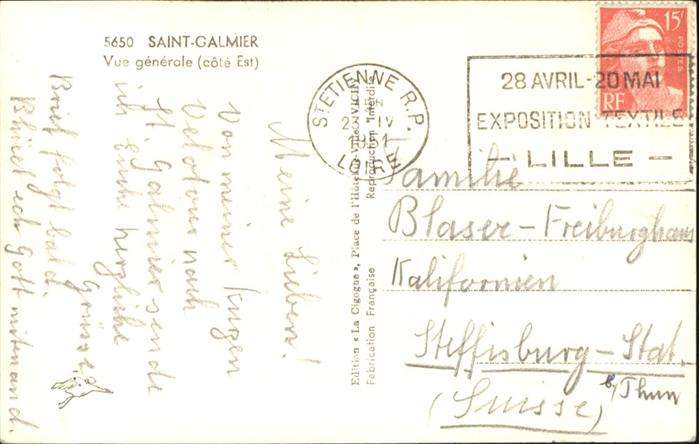 5650 SAINT-GALMIER
Vue générale (côté Est)
Meine Lieben!
Von meiner kurzen
Velotour nach
St. Galmier sende
ich Euch herzliche
Grüsse.
Brief folgt bald.
Bhüet ech Gott mitenand.
Edition « La Cigogne », Place de l'Hôtel-de-Ville, VICHY
Fabrication Française
Reproduction Interdite
ST ETIENNE R.P.
LOIRE
28 AVRIL-20 MAI
EXPOSITION TEXTILE
- LILLE -
15f
POSTES
RF
Familie
Blaser-Freiburghaus
Kalifornien
Steffisburg-Stat.
b/Thun
(Suisse)